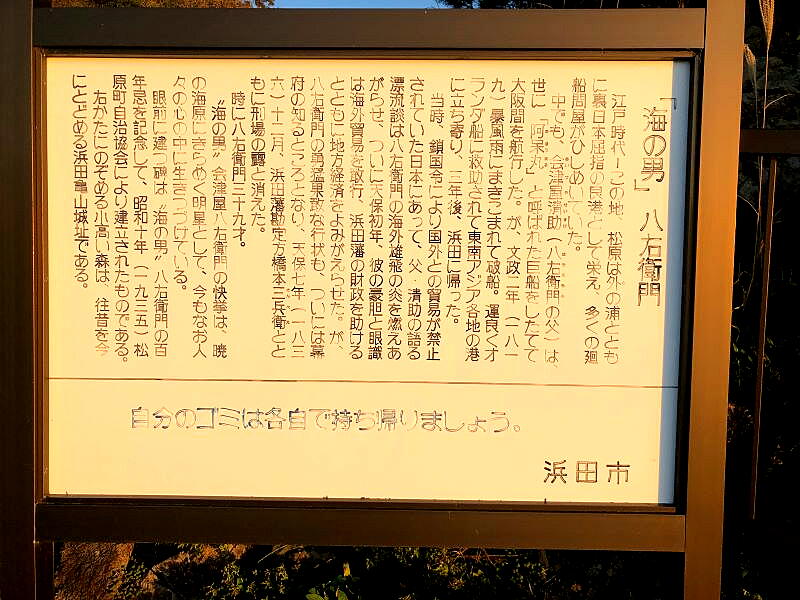 「海の男」八右衛門
江戸時代ーこの地、松原は外の浦ととも
に裏日本屈指の良港として栄え、多くの廻
船問屋がひしめいていた。
中でも、会津屋清助（八右衛門の父）は、
世に「阿呆丸」と呼ばれた巨船をしたてて
大阪間を航行した。が、文政二年（一八一
九）暴風雨にまきこまれて破船。運良くオ
ランダ船に救助されて東南アジア各地の港
に立ち寄り、三年後、浜田に帰った。
当時、鎖国令により国外との貿易が禁止
されていた日本にあって、父・清助の語る
漂流談は八右衛門の海外雄飛の炎を燃えあ
がらせ、ついに天保初年、彼の豪胆と眼識
は海外貿易を敢行、浜田藩の財政を助ける
とともに地方経済をよみがえらせた。が、
八右衛門の勇猛果敢な行状も、ついには幕
府の知るところとなり、天保七年（一八三
六）十二月、浜田藩勘定方橋本三兵衛とと
もに刑場の露と消えた。
時に八右衛門三十九才。
“海の男”会津屋八右衛門の快挙は、暁
の海原にきらめく明星として、今もなお人
々の心の中に生きつづけている。
眼前に建つ碑は“海の男”八右衛門の百
年忌を記念して、昭和十年（一九三五）松
原町自治協会により建立されたものである。
右かたにのぞめる小高い森は、往昔を今
にとどめる浜田亀山城址である。
自分のゴミは各自で持ち帰りましょう。
浜田市